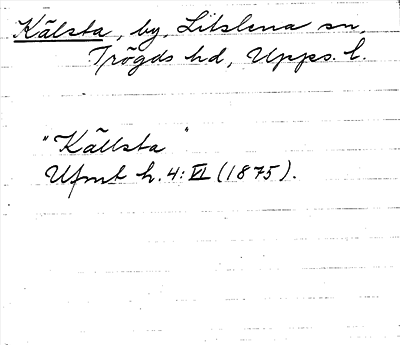 Kälsta, by, Litslena sn,
Trögds hd, Upps. l.
"Källsta"
Ufmt h. 4: VI (1875).